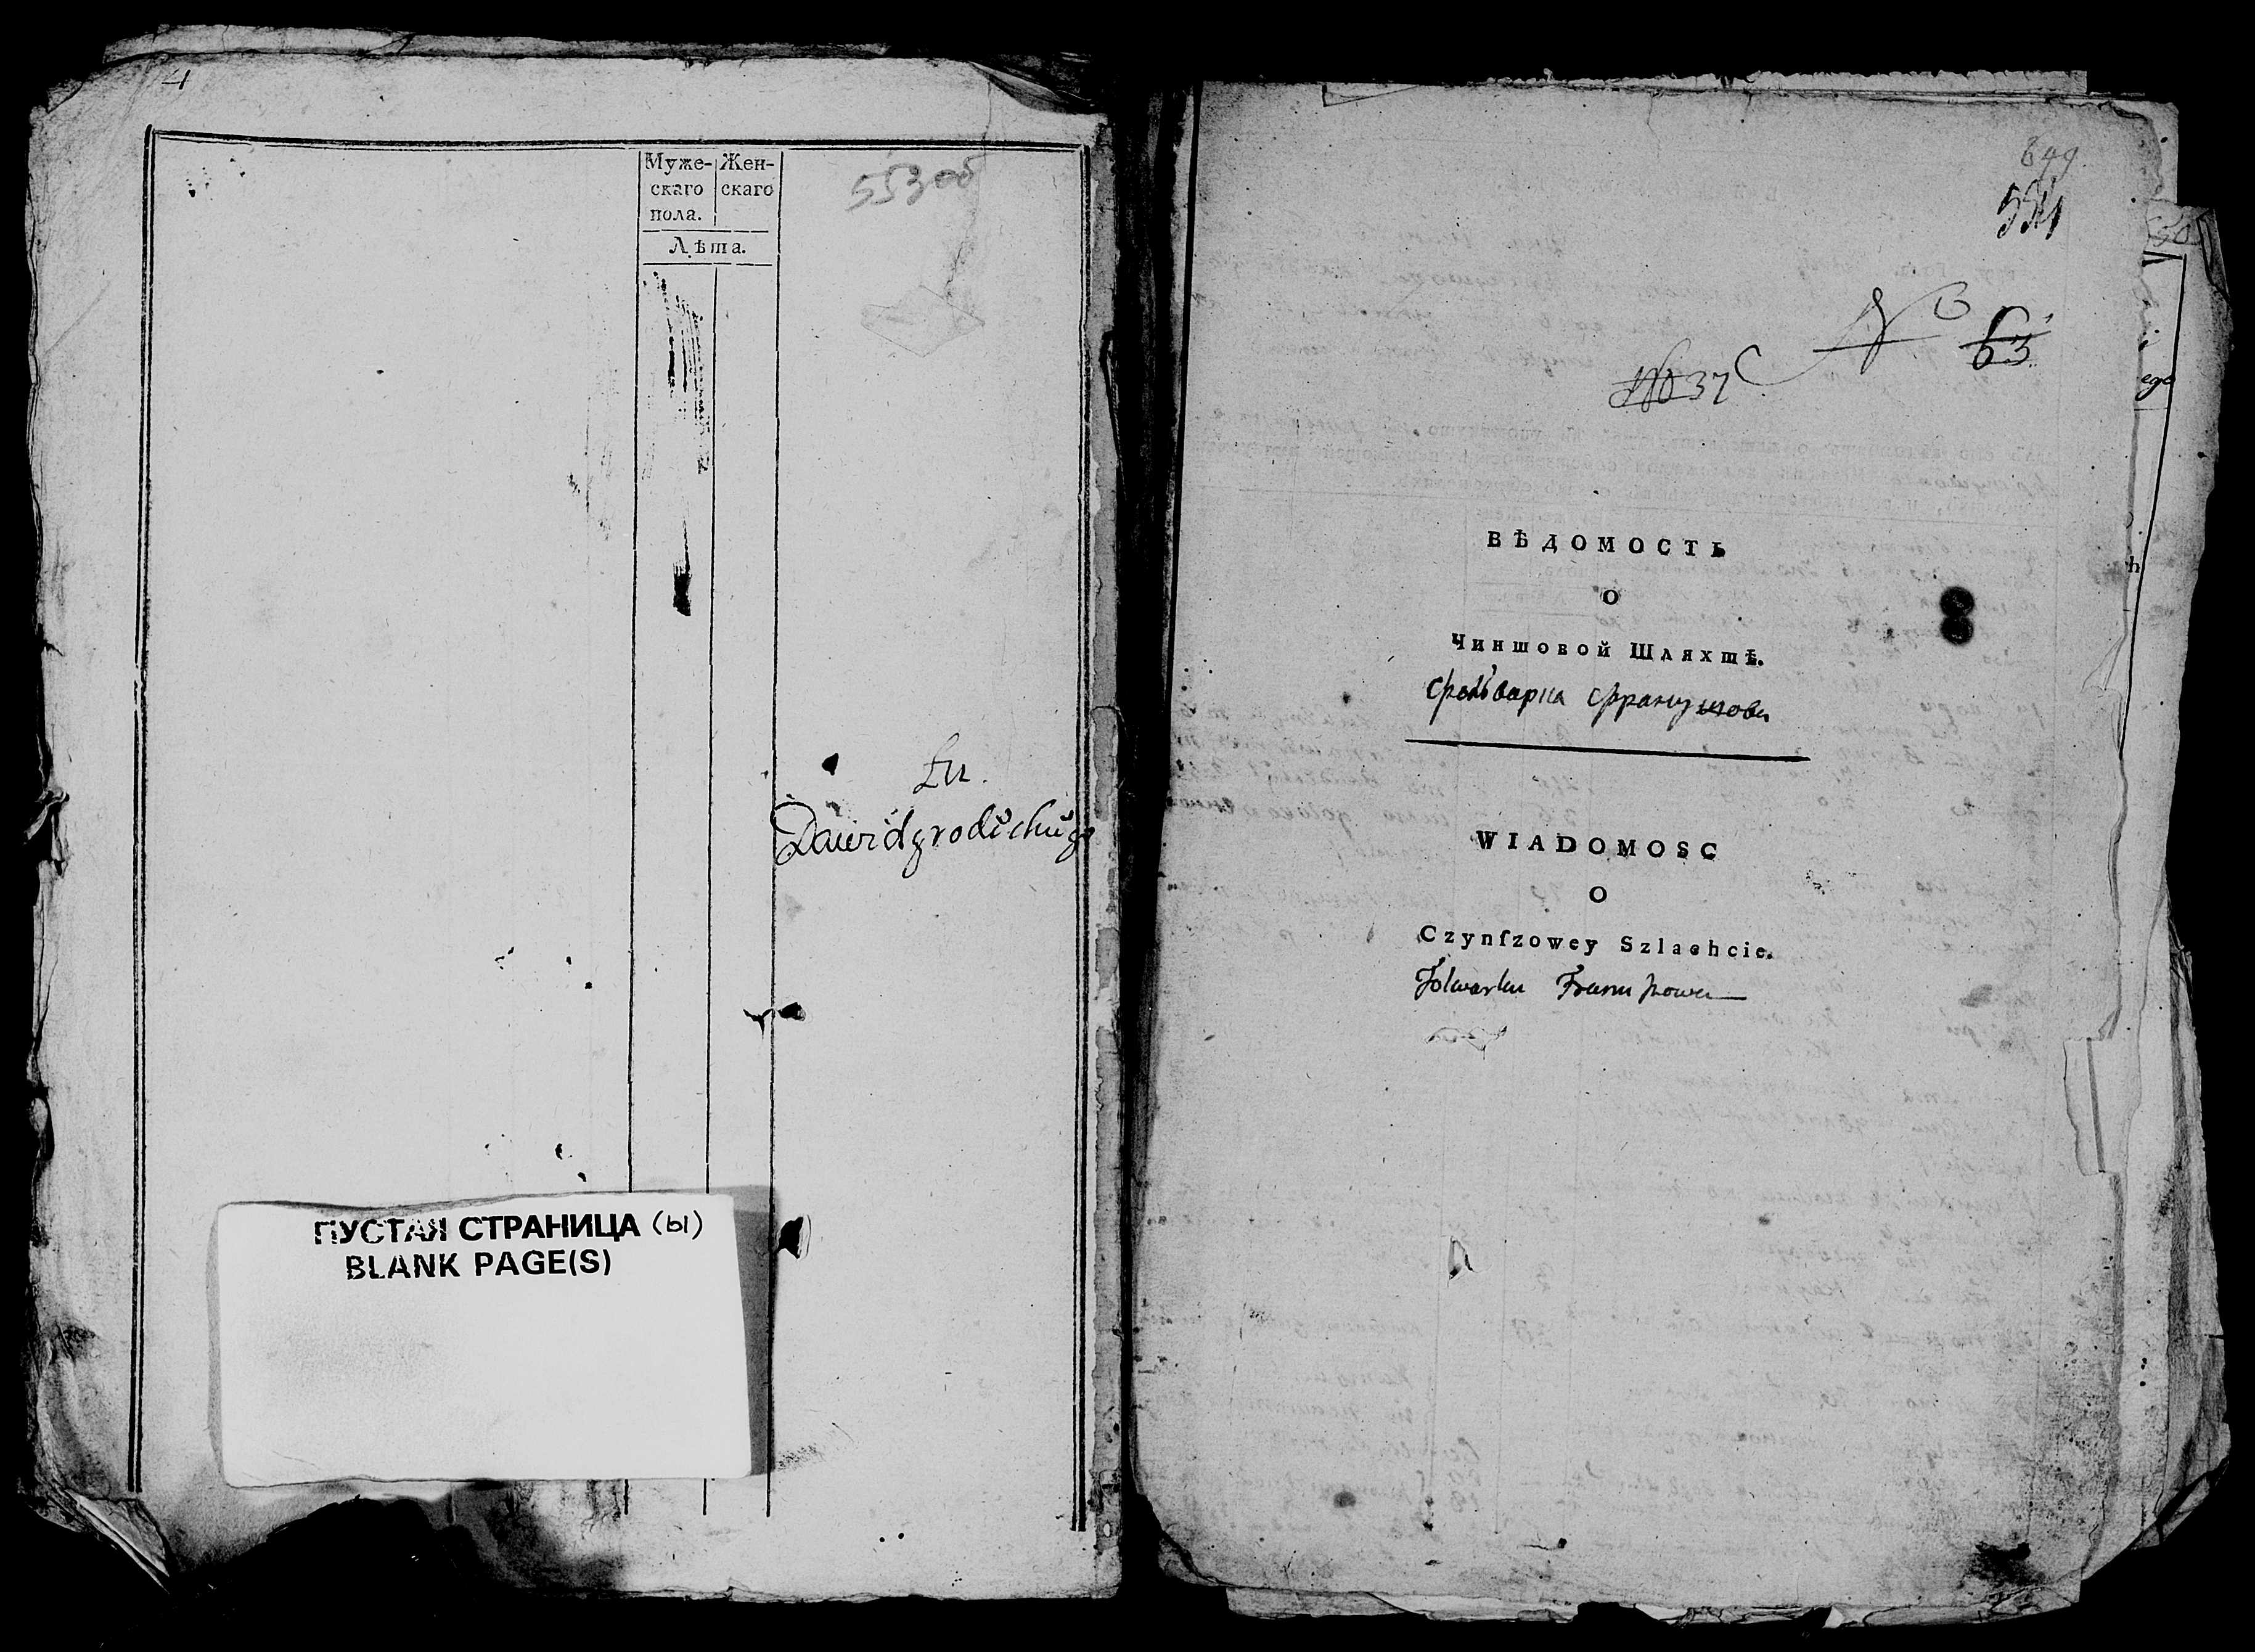 Муже-
скаго
пола.
Жен-
скаго
Лѣта.
553 об
Dawidgrodschugo
ПУСТАЯ СТРАНИЦА (ы)
BLANK PAGE(S)
649
554
№ 63
№ 37
ВѢДОМОСТЬ
О
Чиншовой Шляхтѣ.
фольварка Францушова
WIADOMOSC
O
Czynſzowey Szlachcie.
Folwarku